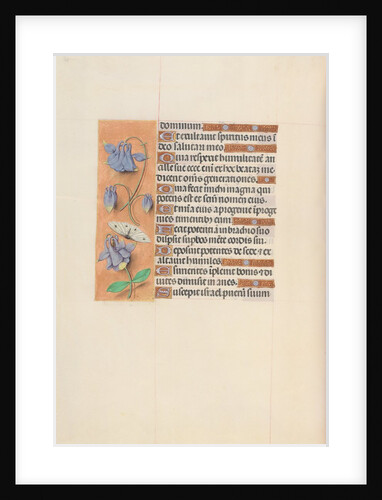 dominum.
Et exultavit spiritus meus i
deo salutari meo.
Quia respexit humilitatem an
cille sue ecce eni ex hoc beatam me
dicent oms generationes.
Quia fecit michi magna qui
potens est et sctm nomen eius.
Et mia eius a progenie i proge
nies timentibus eum.
Fecit potentiam i brachio suo
dispsit supbos mete cordis sui.
Deposuit potentes de sede et ex
altavit humiles.
Esurientes iplevit bonis et di
vites dimisit inanes.
Suscepit israel puerum suum